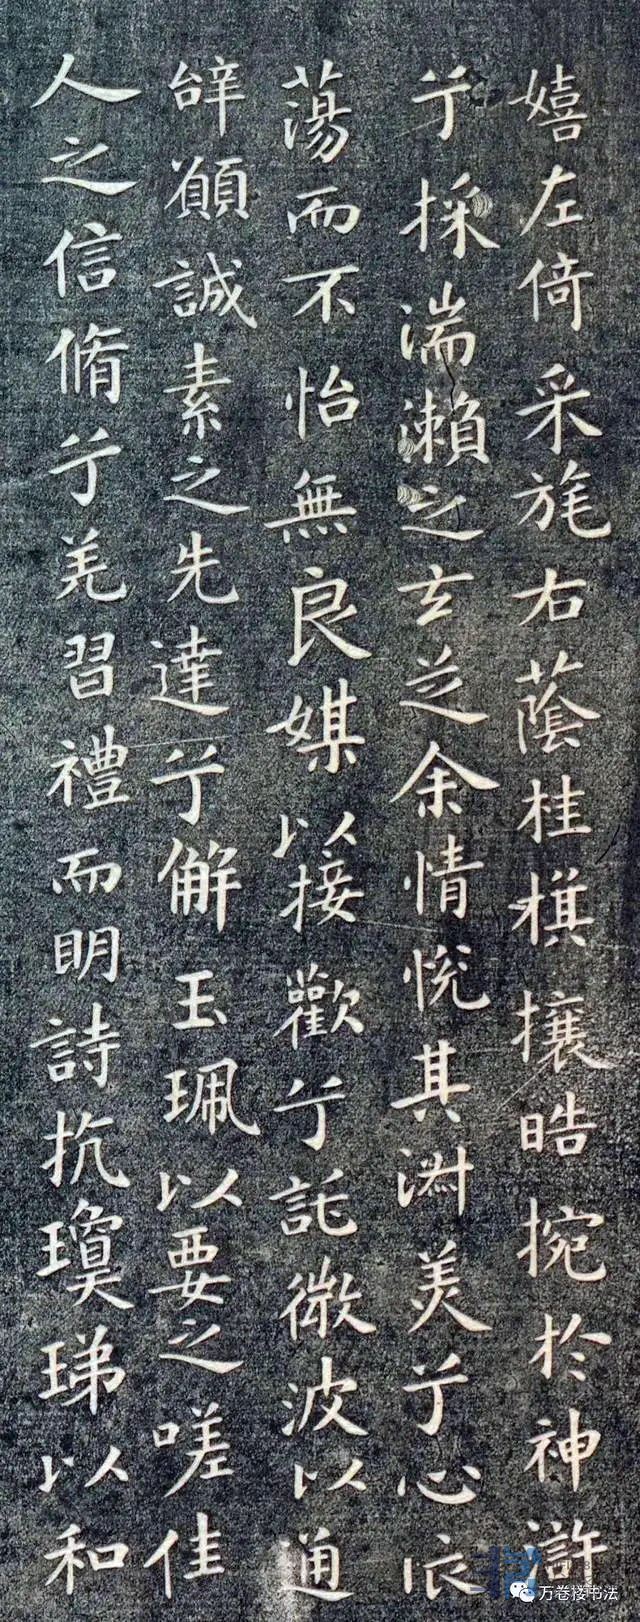 嬉左倚采旄右蔭桂棋攘皓捥於神滸
兮採湍瀨之玄芝余情悅其淑美兮心依
蕩而不怡無良媒以接歡兮託微波以通
辝願誠素之先達兮解玉珮以要之嗟佳
人之信脩兮羌習禮而明詩抗瓊珶以和
万卷楼书法